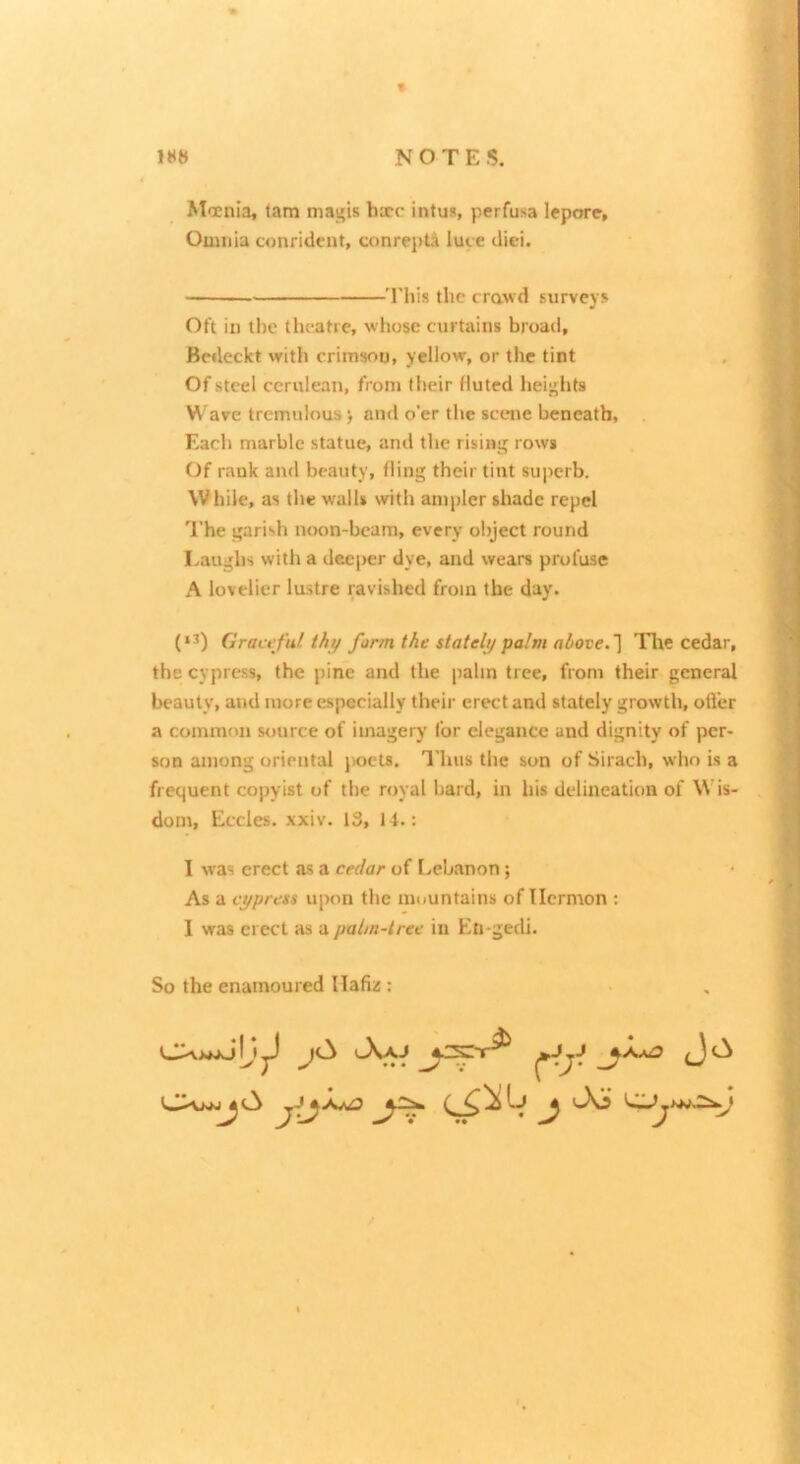 188 NOTES.
Mœnia, tam magis hæc intus, perfusa lepore,
Omnia conrident, conreptâ luce diei.
——————This the crowd surveys
Oft in the theatre, whose curtains broad,
Bedeckt with crimson, yellow, or the tint
Of steel cerulean, from their fluted heights
Wave tremulous; and o'er the scene beneath,
Each marble statue, and the rising rows
Of rank and beauty, fling their tint superb.
While, as the walls with ampler shade repel
The garish noon-beam, every object round
Laughs with a deeper dye, and wears profuse
A lovelier lustre ravished from the day.
(13) Graceful thy form the stately palm above.] The cedar,
the cypress, the pine and the palm tree, from their general
beauty, and more especially their erect and stately growth, offer
a common source of imagery for elegance and dignity of per-
son among oriental poets. Thus the son of Sirach, who is a
frequent copyist of the royal bard, in his delineation of Wis-
dom, Eccles. xxiv. 13, 14.:
I was erect as a cedar of Lebanon;
As a cypress upon the mountains of Hermon :
I was erect as a palm-tree in En-gedi.
So the enamoured Hafiz :
دل صنوبریم همچو بید در لرزانست
بحسرت قد و بالای چو صنوبر دوست